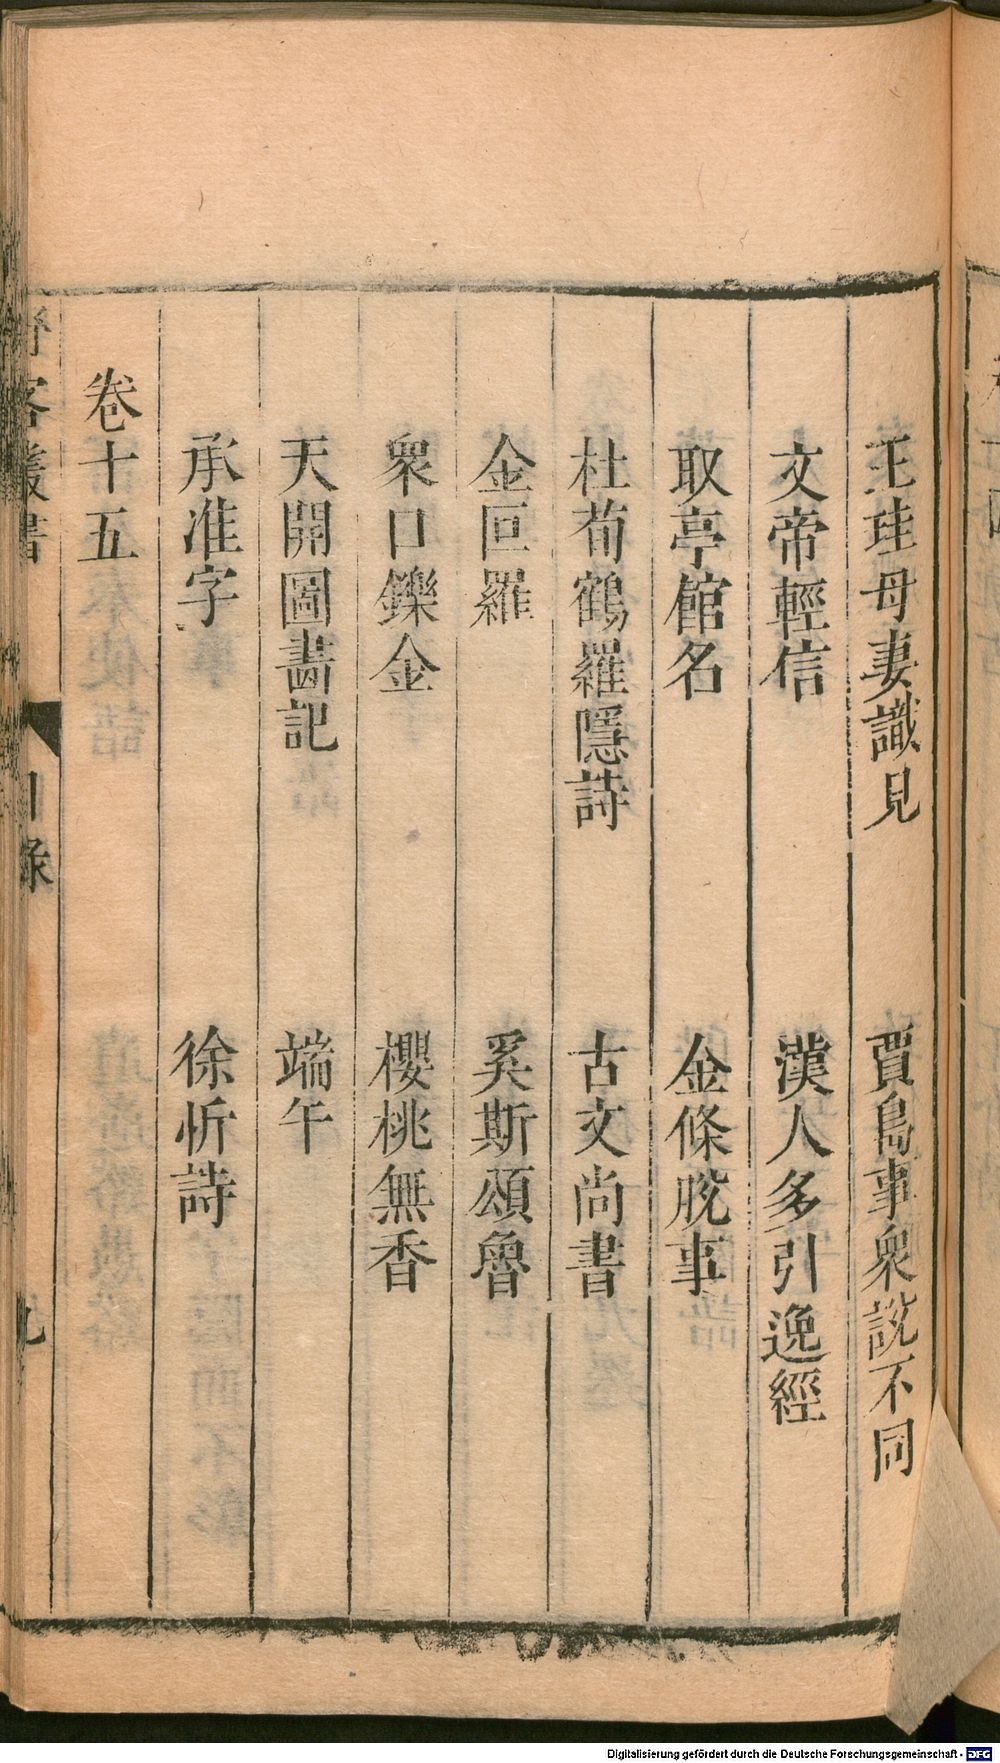 王珪母妻識見 賈島事衆説不同
文帝輕信 漢人多引逸經
取亭館名 金條脱事
杜荀鶴羅隱詩 古文尚書
金叵羅 奚斯頌魯
衆口鑠金 櫻桃無香
天開圖畵記 端午
承准字 徐忻詩
卷十五
客叢書 目錄 九
Digitalisierung gefördert durch die Deutsche Forschungsgemeinschaft - DFG